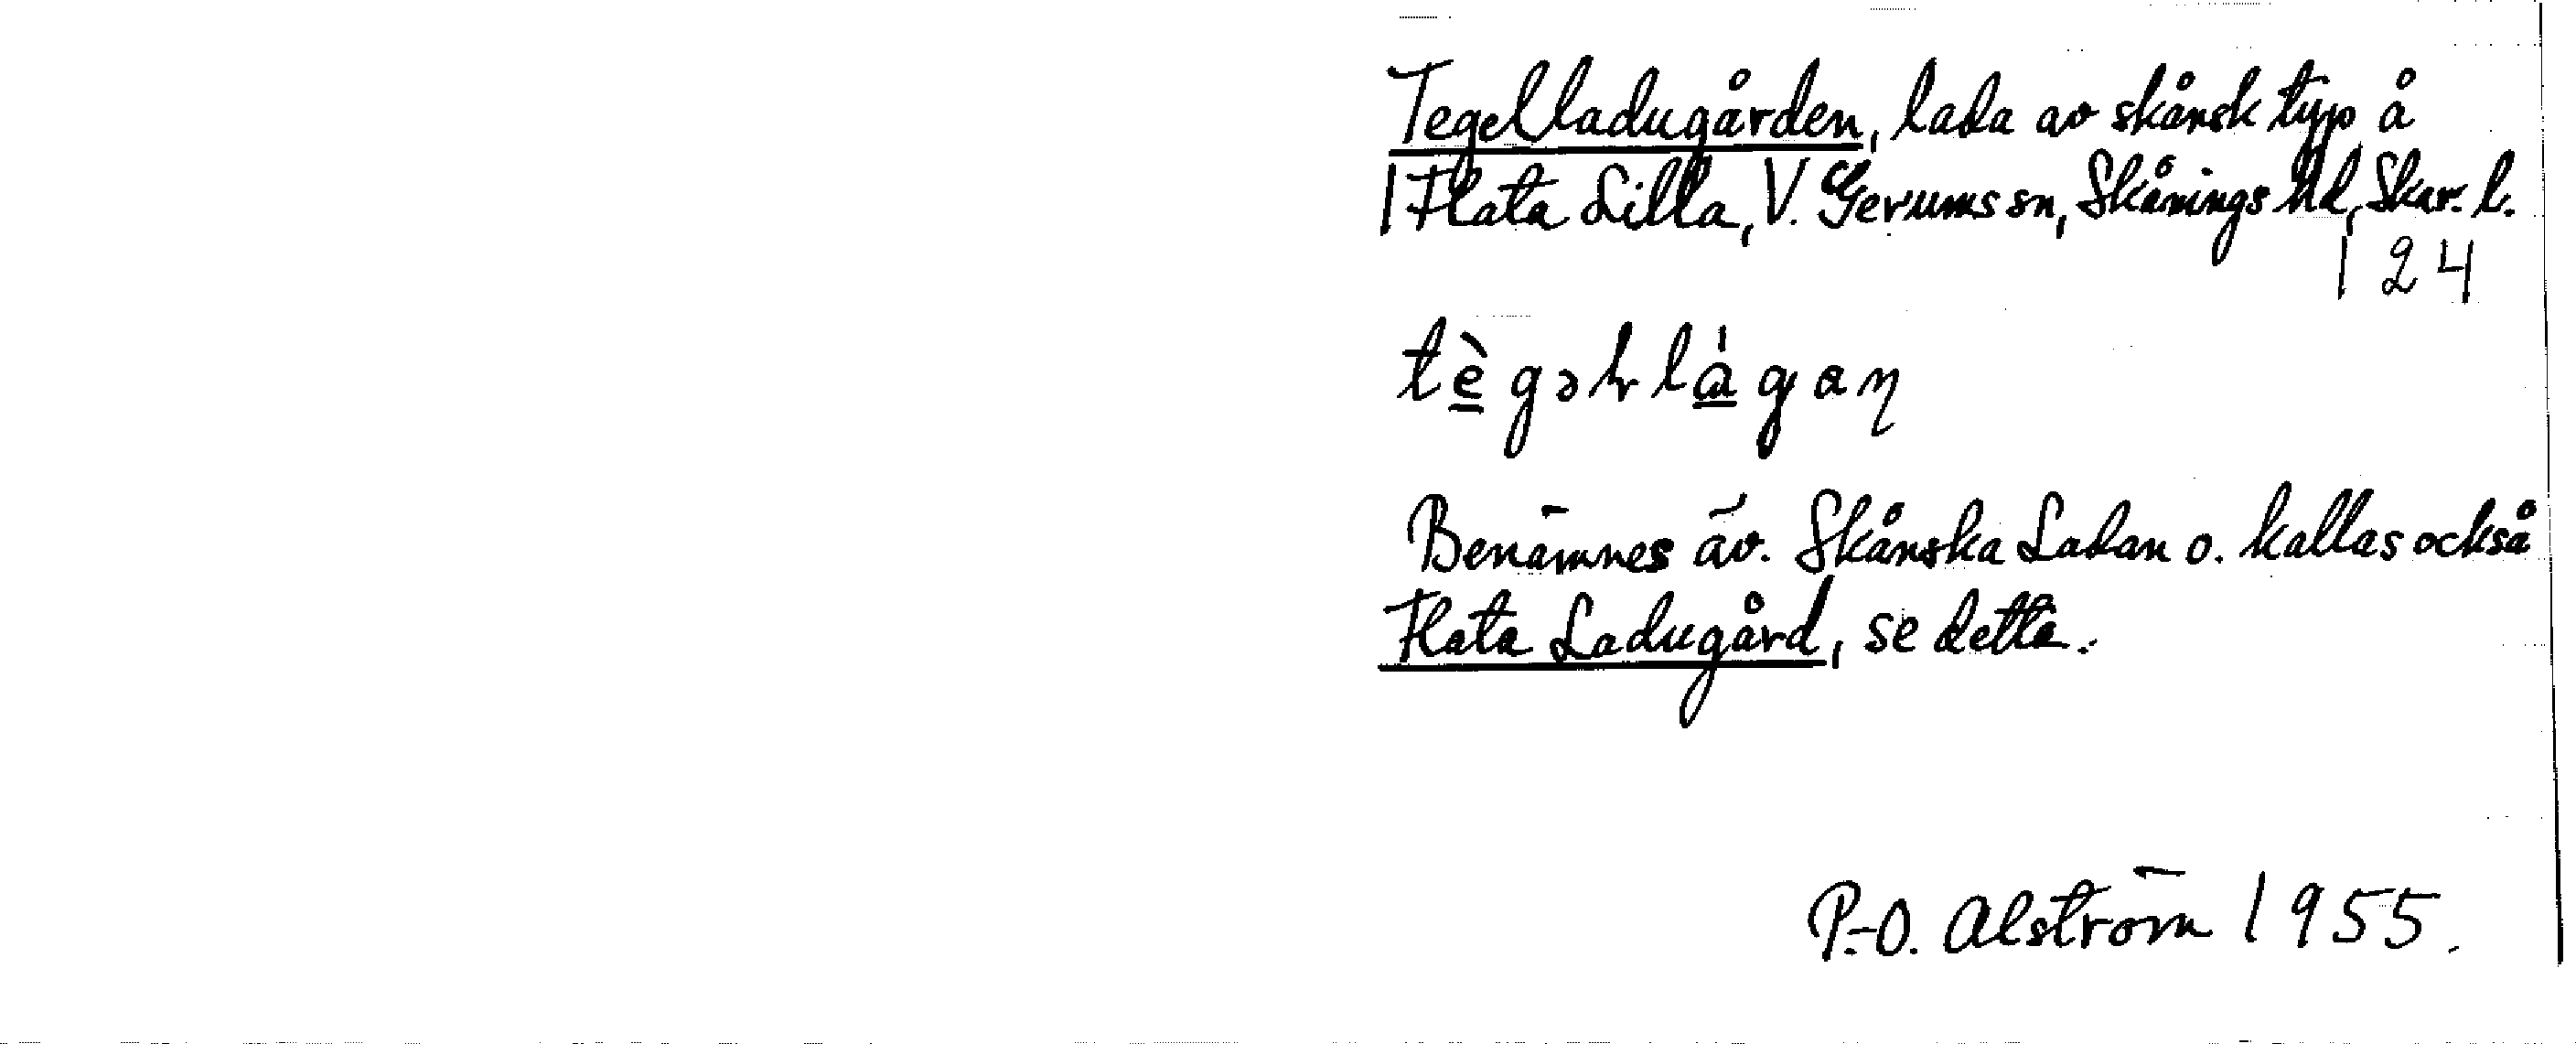 Tegelladugården, lada av skånsk typ å
1 Flata Lilla, V. Gerums sn, Skånings hd, Skar. l.
124
tègəlɩlàgaɳ
Benämnes äv. Skånska Ladan o. kallas också
Flata Ladugård, se detta.
P.-O. Alström 1955.